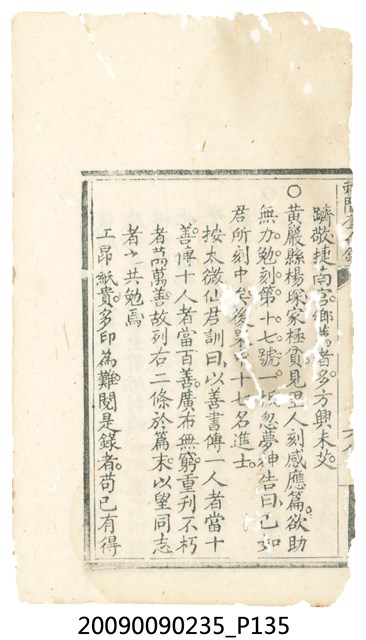 躋敬捷南宮鄉薦者多方興未艾
○黃嚴縣楊琛家極貧見里人刻感應篇欲助
無力勉刻第十七號板忽夢神告曰已如
君所刻中矣後 十七名進士
按太微仙君訓曰以善書傳一人者當十
善傳十人者當百善廣布無窮重刊不朽
者萬萬善故列右二條於篇末以望同志
者之共勉焉
工昂紙貴多印為難閱是錄者苟已有得
20090090235_P135